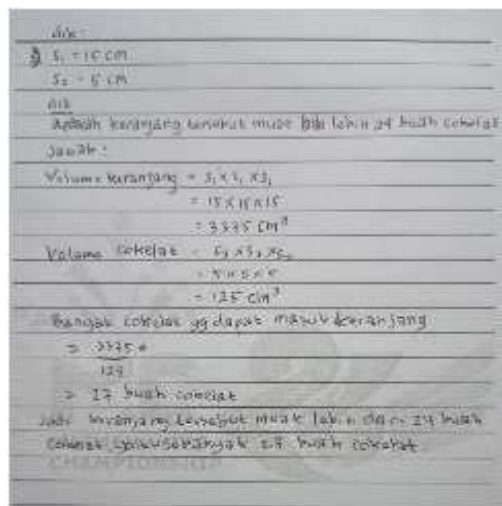 dik:
S₁ = 15 cm
S₂ = 5 cm
dit
Apakah keranjang tersebut muat lebih 24 buah cokelat
Jawab:
Volume keranjang = S₁ x S₁ x S₁
= 15 x 15 x 15
= 3375 cm³
Volume cokelat = S₂ x S₂ x S₂
= 5 x 5 x 5
= 125 cm³
Banyak cokelat yg dapat masuk keranjang
= 3375
125
= 27 buah cokelat
Jadi keranjang tersebut muat lebih dari 24 buah
cokelat, yaitu sebanyak 27 buah cokelat
CHAMPIONSHIP